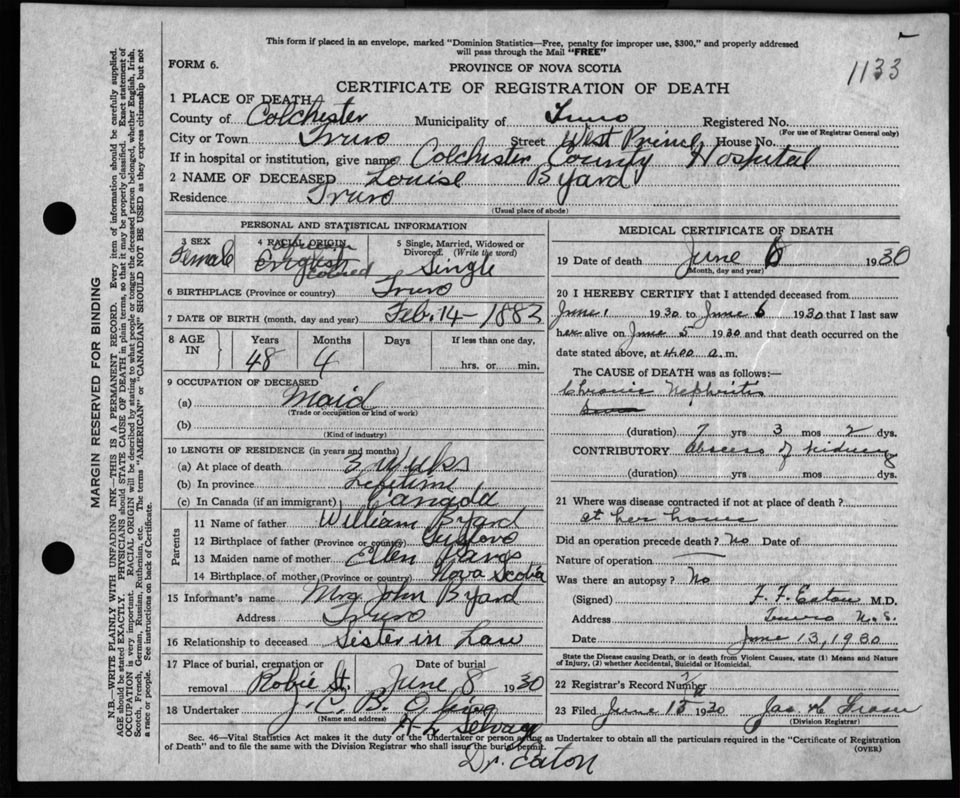 This form if placed in an envelope, marked "Dominion Statistics—Free, penalty for improper use, $300," and properly addressed
will pass through the Mail "FREE"
FORM 6.
PROVINCE OF NOVA SCOTIA
1133
CERTIFICATE OF REGISTRATION OF DEATH
1 PLACE OF DEATH
County of Colchester Municipality of Truro Registered No.
(For use of Registrar General only)
City or Town Truro Street West Prince House No.
If in hospital or institution, give name Colchester County Hospital
2 NAME OF DECEASED Louise Byard
Residence Truro
(Usual place of abode)
PERSONAL AND STATISTICAL INFORMATION
3 SEX Female
4 RACIAL ORIGIN English Colored
5 Single, Married, Widowed or Divorced. (Write the word) Single
6 BIRTHPLACE (Province or country) Truro
7 DATE OF BIRTH (month, day and year) Feb. 14 - 1882
8 AGE IN Years 48 Months 4 Days If less than one day, hrs. or min.
9 OCCUPATION OF DECEASED
(a) Maid
(Trade or occupation or kind of work)
(b)
(Kind of industry)
10 LENGTH OF RESIDENCE (in years and months)
(a) At place of death 3 weeks
(b) In province Lifetime
(c) In Canada (if an immigrant) Canada
Parents
11 Name of father William Byard
12 Birthplace of father (Province or country)
13 Maiden name of mother Ellen
14 Birthplace of mother (Province or country) Nova Scotia
15 Informant's name Mrs John Byard
Address Truro
16 Relationship to deceased Sister in Law
17 Place of burial, cremation or removal Robie St. Date of burial June 8 1930
18 Undertaker J. C. B.
(Name and address)
MEDICAL CERTIFICATE OF DEATH
19 Date of death June 6 1930
(Month, day and year)
20 I HEREBY CERTIFY that I attended deceased from
June 1 1930 to June 6 1930 that I last saw
her alive on June 5 1930 and that death occurred on
date stated above, at 4.00 a.m.
The CAUSE of DEATH was as follows:—
Chronic Nephritis
(duration) 7 yrs 3 mos 2 dys.
CONTRIBUTORY Abscess of Kidney
(duration) yrs mos dys.
21 Where was disease contracted if not at place of death?
at her home
Did an operation precede death? No Date of
Nature of operation
Was there an autopsy? No
(Signed) F. F. Eaton M.D.
Address Truro N.S.
Date June 13, 1930
State the Disease causing Death, or in death from Violent Causes, state (1) Means and Nature
of Injury, (2) whether Accidental, Suicidal or Homicidal.
22 Registrar's Record Number
23 Filed June 15 1930
(Division Registrar)
Sec. 46—Vital Statistics Act makes it the duty of the Undertaker or person acting as Undertaker to obtain all the particulars required in the "Certificate of Registration
of Death" and to file the same with the Division Registrar who shall issue the burial permit.
(OVER)
Dr. Eaton
MARGIN RESERVED FOR BINDING
N.B.—WRITE PLAINLY WITH UNFADING INK—THIS IS A PERMANENT RECORD. Every item of information should be carefully supplied.
AGE should be stated EXACTLY. PHYSICIANS should STATE CAUSE OF DEATH in plain terms, so that it may be properly classified. Exact statement of
OCCUPATION is very important. RACIAL ORIGIN will be described by stating to what people or tongue the deceased person belonged, whether English, Irish,
Scotch, French, German, Russian, Ruthenian, etc. The terms "AMERICAN" or "CANADIAN" SHOULD NOT BE USED as they express citizenship but not
a race or people. See instructions on back of Certificate.